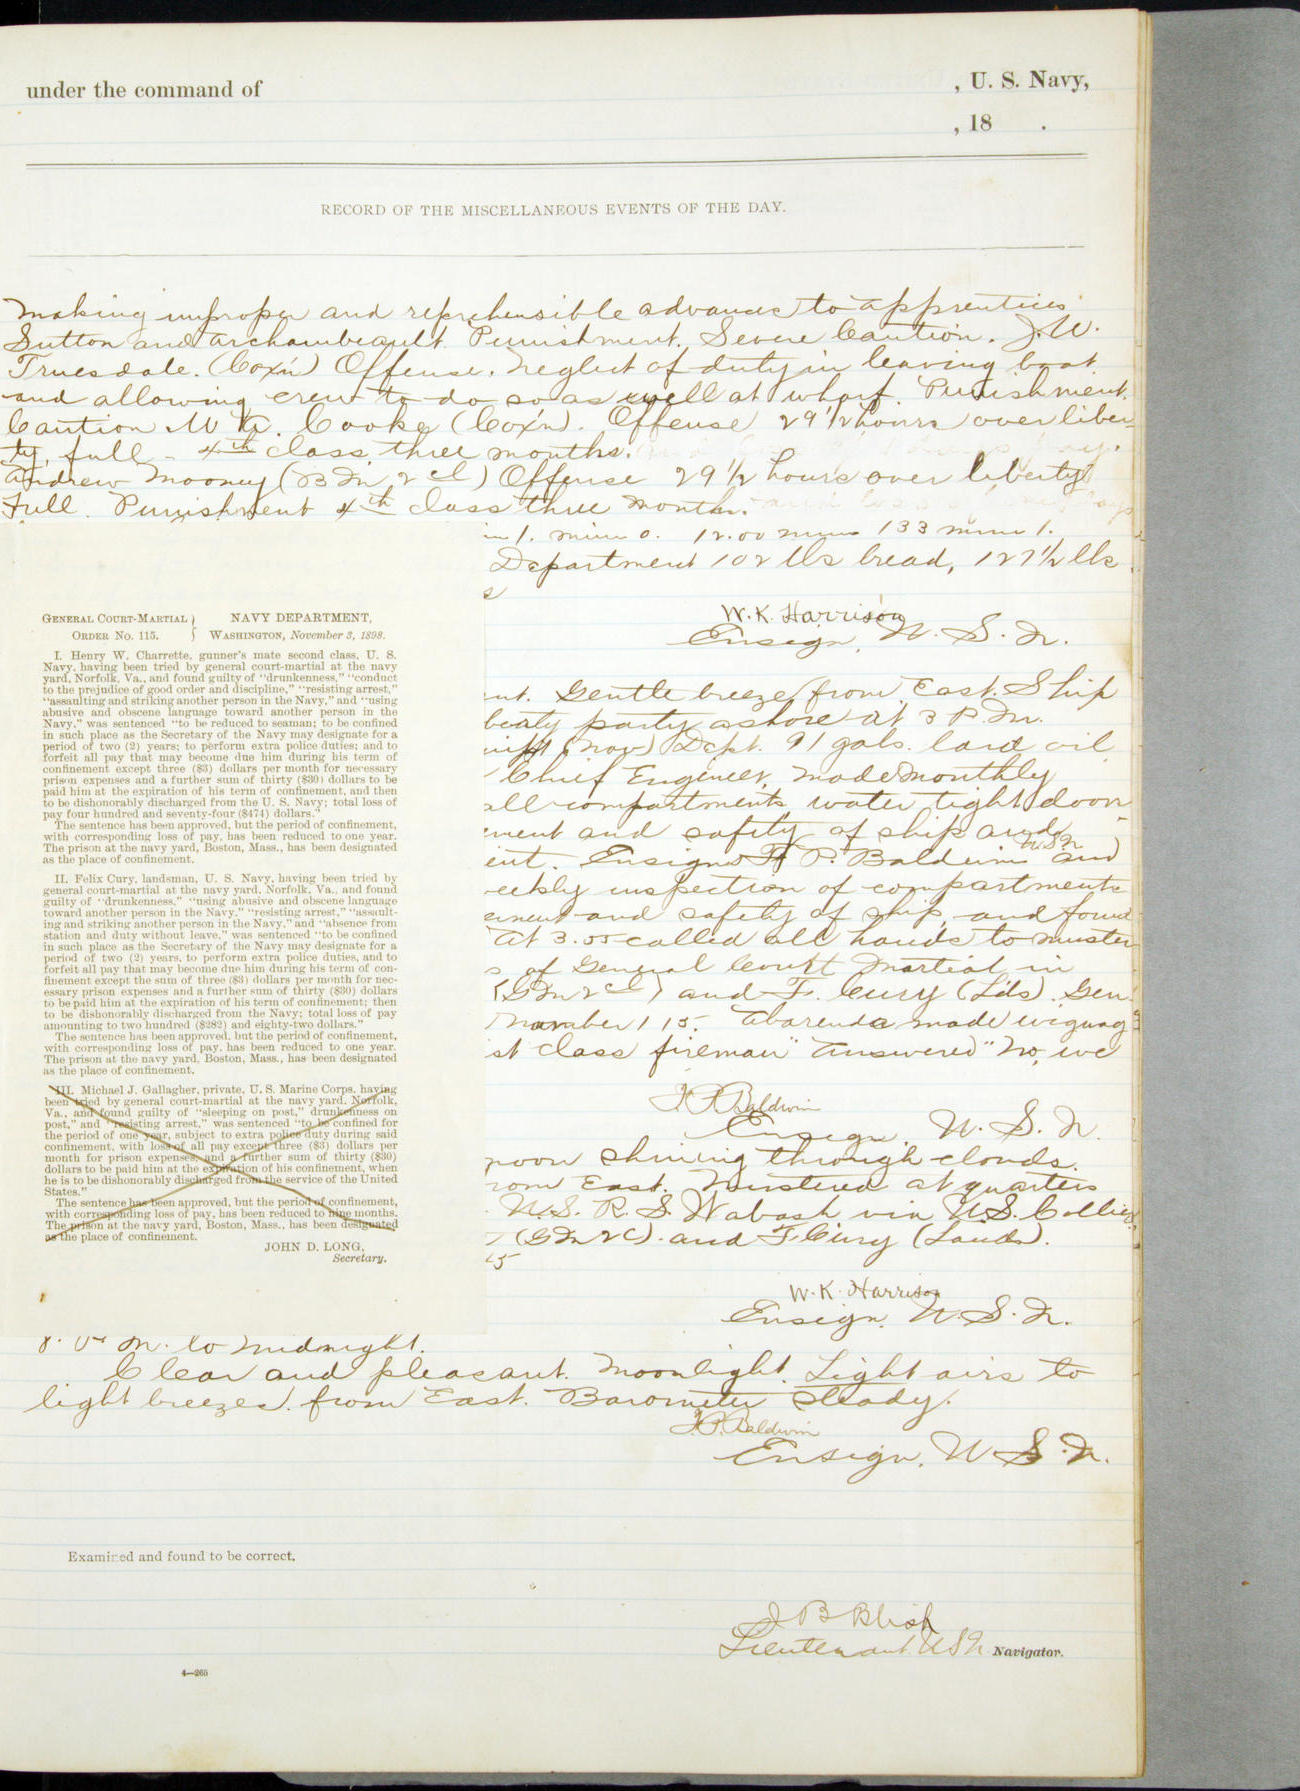 under the command of , U. S. Navy,
, 18 .
RECORD OF THE MISCELLANEOUS EVENTS OF THE DAY.
making improper and reprehensible advances to apprentices
Sutton and Archambeault. Punishment. Severe Caution. J. W.
Truesdale. (Cox'n) Offense. Neglect of duty in leaving boat
and allowing crew to do so as well at wharf. Punishment.
Caution. Cooke (Cox'n). Offense 29 1/2 hours over liber-
ty, full - 4th class three months.
Andrew Mooney (B M 2 cl) Offense 29 1/2 hours over liberty
Full. Punishment 4th class three months.
12.00 133
Department 102 lbs bread, 127 1/2 lbs
W. K. Harrison
Ensign, U. S. N.
GENERAL COURT-MARTIAL ORDER NO. 115.
NAVY DEPARTMENT,
WASHINGTON, November 3, 1898.
I. Henry W. Charrette, gunner's mate second class, U. S.
Navy, having been tried by general court-martial at the navy
yard, Norfolk, Va., and found guilty of "drunkenness," "conduct
to the prejudice of good order and discipline," "resisting arrest,"
"assaulting and striking another person in the Navy," and "using
abusive and obscene language toward another person in the
Navy," was sentenced "to be reduced to seaman; to be confined
in such place as the Secretary of the Navy may designate for a
period of two (2) years; to perform extra police duties; and to
forfeit all pay that may become due him during his term of
confinement except three ($3) dollars per month for necessary
prison expenses and a further sum of thirty ($30) dollars to be
paid him at the expiration of his term of confinement, and then
to be dishonorably discharged from the U. S. Navy; total loss of
pay four hundred and seventy-four ($474) dollars."
The sentence has been approved, but the period of confinement,
with corresponding loss of pay, has been reduced to one year.
The prison at the navy yard, Boston, Mass., has been designated
as the place of confinement.
II. Felix Cury, landsman, U. S. Navy, having been tried by
general court-martial at the navy yard, Norfolk, Va., and found
guilty of "drunkenness," "using abusive and obscene language
toward another person in the Navy," "resisting arrest," "assault-
ing and striking another person in the Navy," and "absence from
station and duty without leave," was sentenced "to be confined
in such place as the Secretary of the Navy may designate for a
period of two (2) years, to perform extra police duties, and to
forfeit all pay that may become due him during his term of con-
finement except the sum of three ($3) dollars per month for nec-
essary prison expenses and a further sum of thirty ($30) dollars
to be paid him at the expiration of his term of confinement; then
to be dishonorably discharged from the Navy; total loss of pay
amounting to two hundred ($282) and eighty-two dollars."
The sentence has been approved, but the period of confinement,
with corresponding loss of pay, has been reduced to one year.
The prison at the navy yard, Boston, Mass., has been designated
as the place of confinement.
III. Michael J. Gallagher, private, U. S. Marine Corps, having
been tried by general court-martial at the navy yard, Norfolk,
Va., and found guilty of "sleeping on post," drunkenness on
post," and "resisting arrest," was sentenced "to be confined for
the period of one year, subject to extra police duty during said
confinement, with loss of all pay except three ($3) dollars per
month for prison expenses, and a further sum of thirty ($30)
dollars to be paid him at the expiration of his confinement, when
he is to be dishonorably discharged from the service of the United
States."
The sentence has been approved, but the period of confinement,
with corresponding loss of pay, has been reduced to nine months.
The prison at the navy yard, Boston, Mass., has been designated
as the place of confinement.
JOHN D. LONG,
Secretary.
Gentle breeze from East. Ship
party ashore at 3 P.M.
(Nav) Dept. 91 gals. lard oil
Chief Engineer, made monthly
all compartments water tight doors
ment and safety of ship and
Ensigns F. P. Baldwin U.S.N. and
weekly inspection of compartments
and safety of ship, and found
At 3.55 called all hands to muster
of General Court Martial in
(G M 2 cl) and F. Cury (Lds). Gen.
Number 115. Abarenda made wigwag
1st class fireman" answered "No, we
F. P. Baldwin
Ensign, U. S. N.
moon shining through clouds.
from East. Mustered at quarters
U. S. R. S. Wabash via U.S. Collier
(G M 2 C). and F. Cury (Lands).
15
W. K. Harrison
Ensign, U. S. N.
M. to Midnight.
Clear and pleasant. Moonlight. Light airs to
light breezes. from East. Barometer steady.
F. P. Baldwin
Ensign, U. S. N.
Examined and found to be correct.
J B Blish
Lieutenant U S N Navigator.
4—265